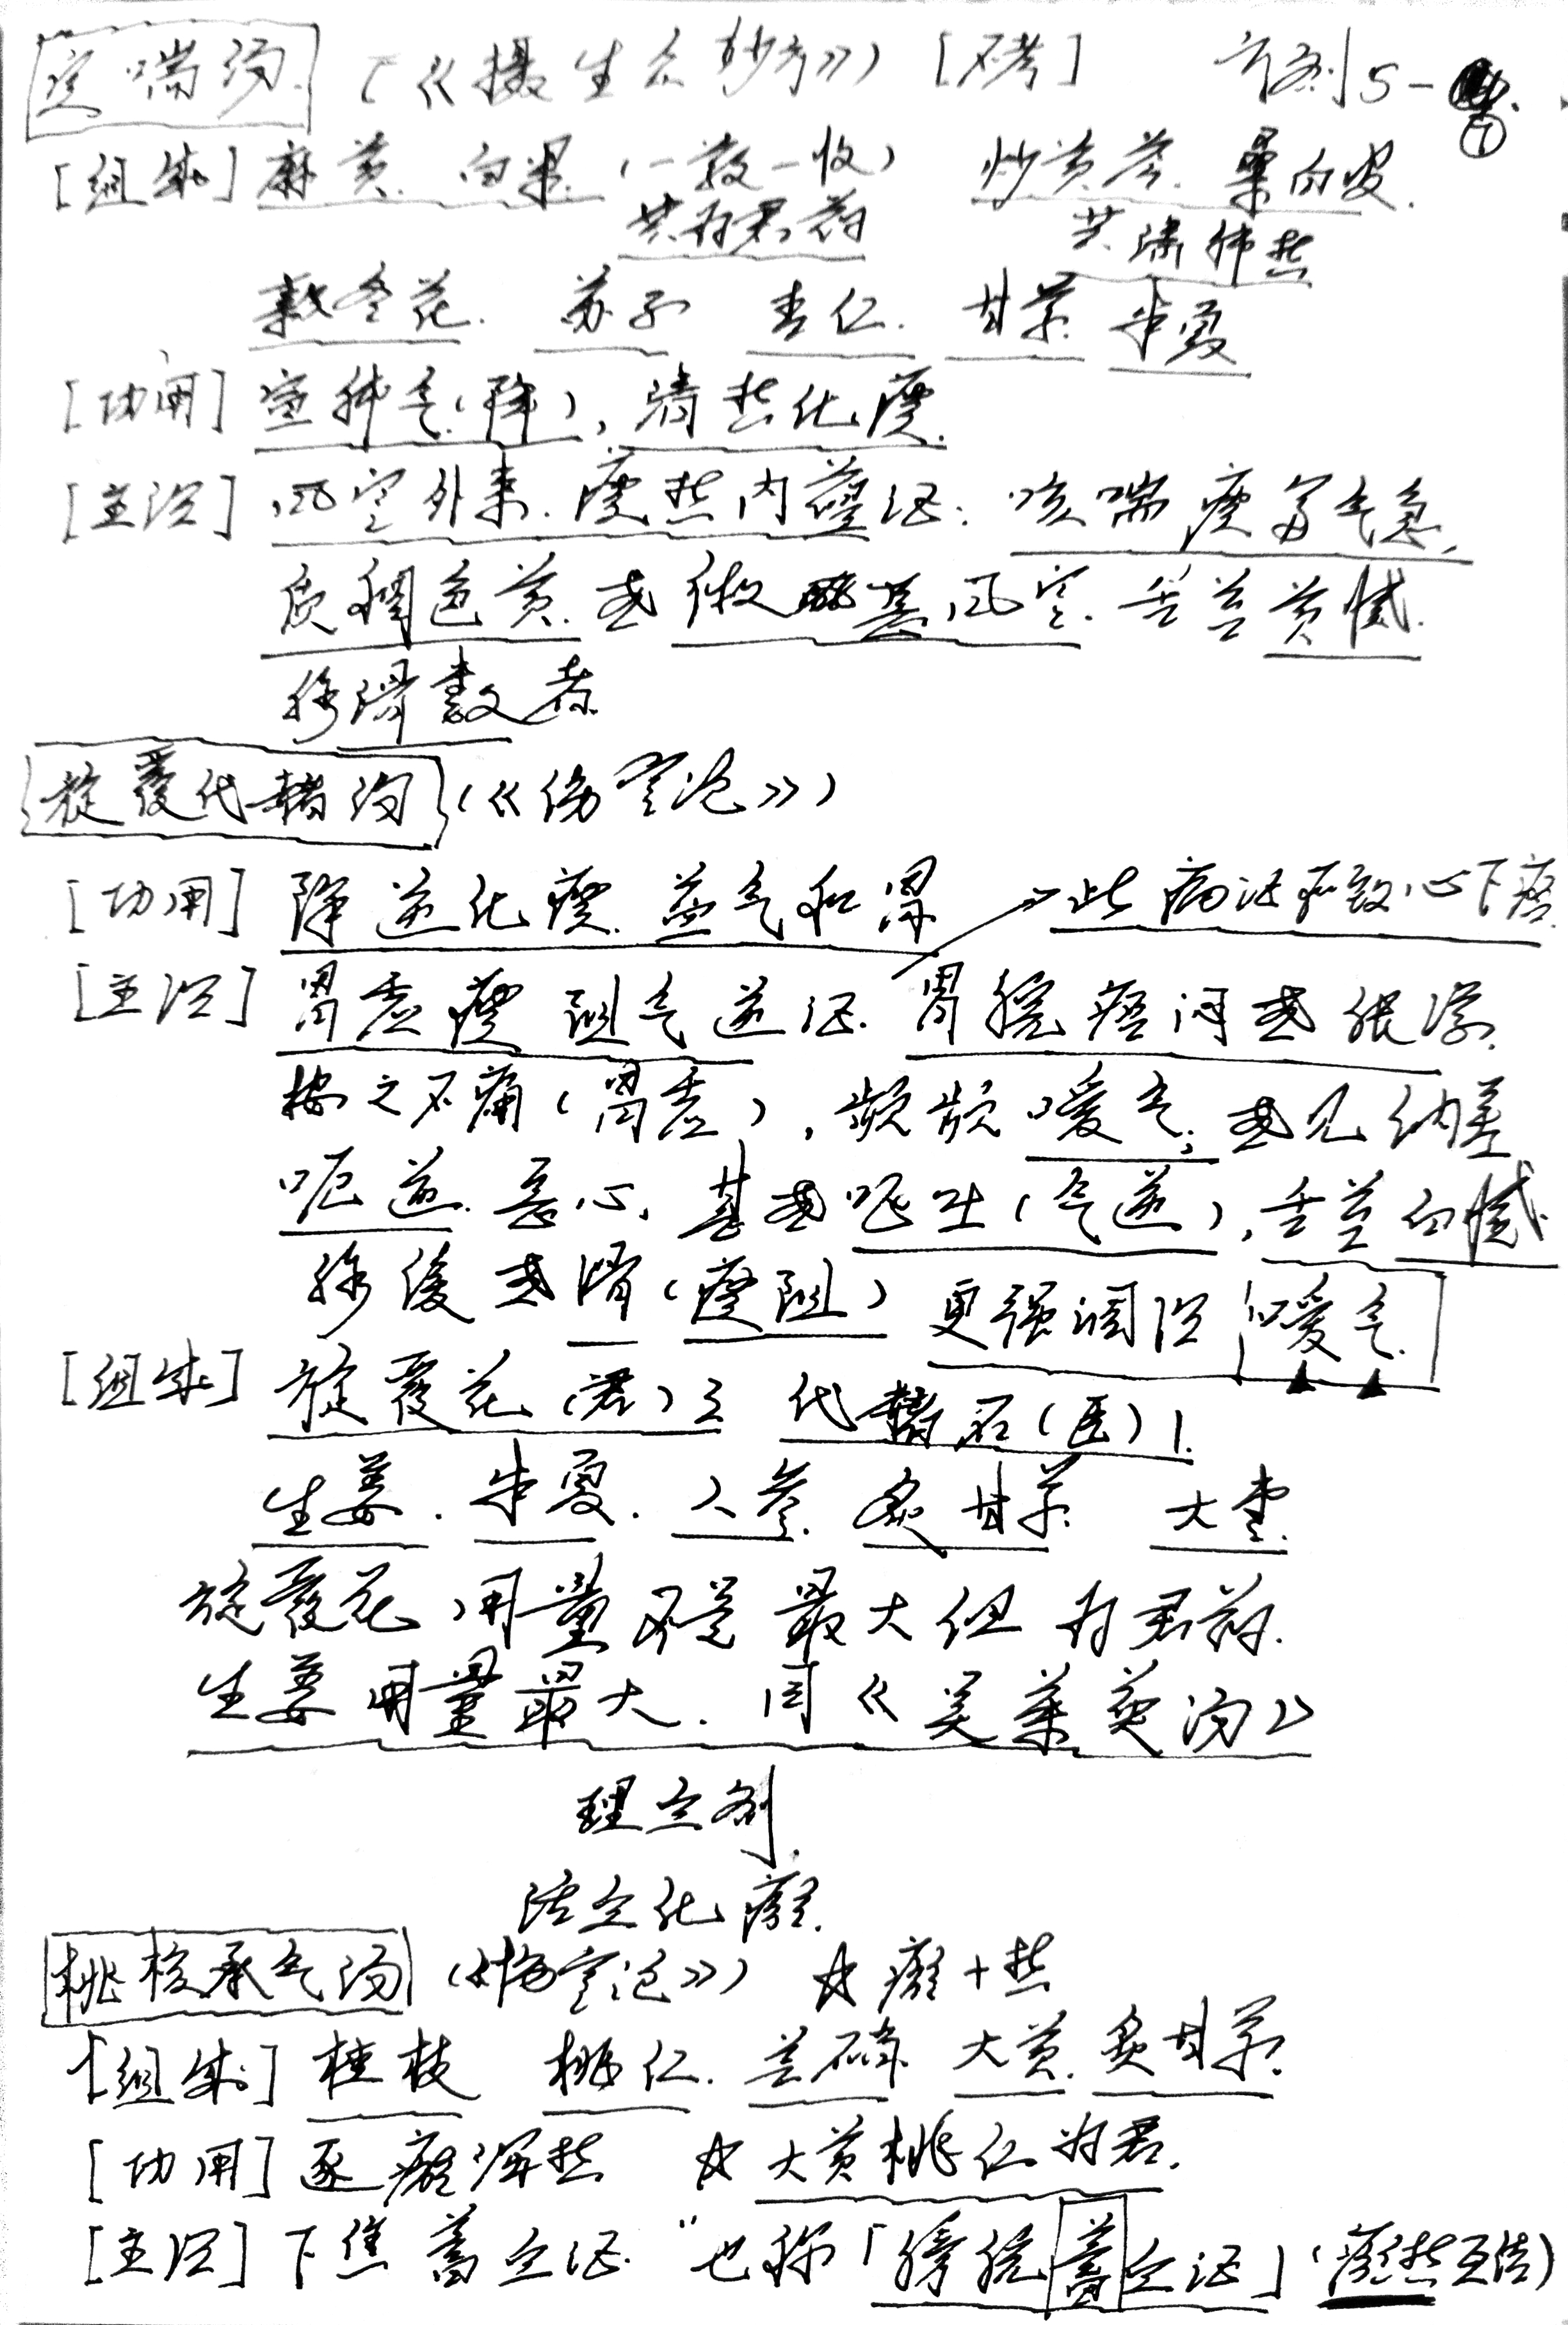 定喘汤 (《摄生众妙方》) [不考] 方剂5-⑦
[组成] 麻黄. 白果. (一散一收) 炒黄芩. 桑白皮.
共为君药 共清肺热
款冬花. 苏子 杏仁. 甘草. 半夏
[功用] 宣肺气(降), 清热化痰.
[主治] 风寒外束. 痰热内蕴证: 咳喘痰多气急,
质稠色黄. 或微恶风寒. 舌苔黄腻.
脉滑数者
旋覆代赭汤 (《伤寒论》)
[功用] 降逆化痰. 益气和胃 → 此病证所致心下痞.
[主治] 胃虚痰阻气逆证. 胃脘痞闷或胀满.
按之不痛(胃虚), 频频嗳气; 或见纳差
呃逆. 恶心, 甚或呕吐(气逆), 舌苔白腻.
脉缓或滑(痰阻) 更强调治嗳气.
[组成] 旋覆花(君)3 代赭石(臣)1.
生姜. 半夏. 人参. 炙甘草. 大枣.
旋覆花用量不是最大但为君药.
生姜用量最大. 同《吴茱萸汤》
理血剂.
活血化瘀.
桃核承气汤 (《伤寒论》) ☆瘀+热
[组成] 桂枝 桃仁. 芒硝. 大黄. 炙甘草.
[功用] 逐瘀泻热 ☆大黄桃仁为君.
[主治] 下焦蓄血证. "也称「膀胱蓄血证」(瘀热互结)